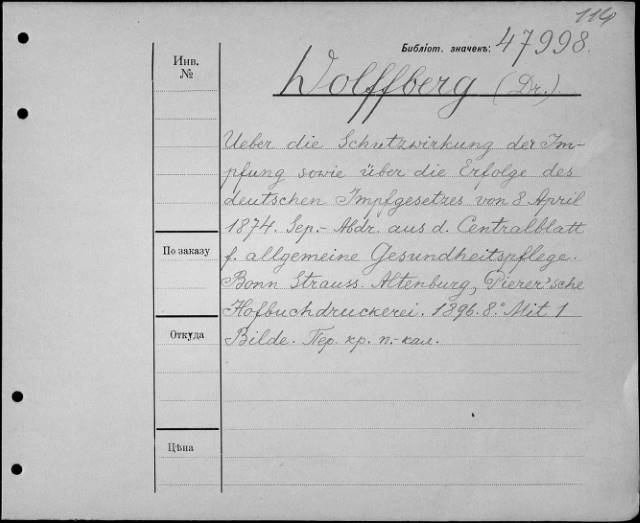 114
Библіот. значекъ: 47998.
Инв.
№
Wolffberg (Dr.)
Ueber die Schutzwirkung der Im-
pfung sowie über die Erfolge des
deutschen Impfgesetzes von 8 April
1874. Sep.- Abdr. aus d. Centralblatt
По заказу
f. allgemeine Gesundheitspflege.
Bonn Strauss. Altenburg, Pierer'sche
Hofbuchdruckerei. 1896. 8.° Mit 1
Откуда
Bilde. Пер. хр. п.-кал.
Цѣна